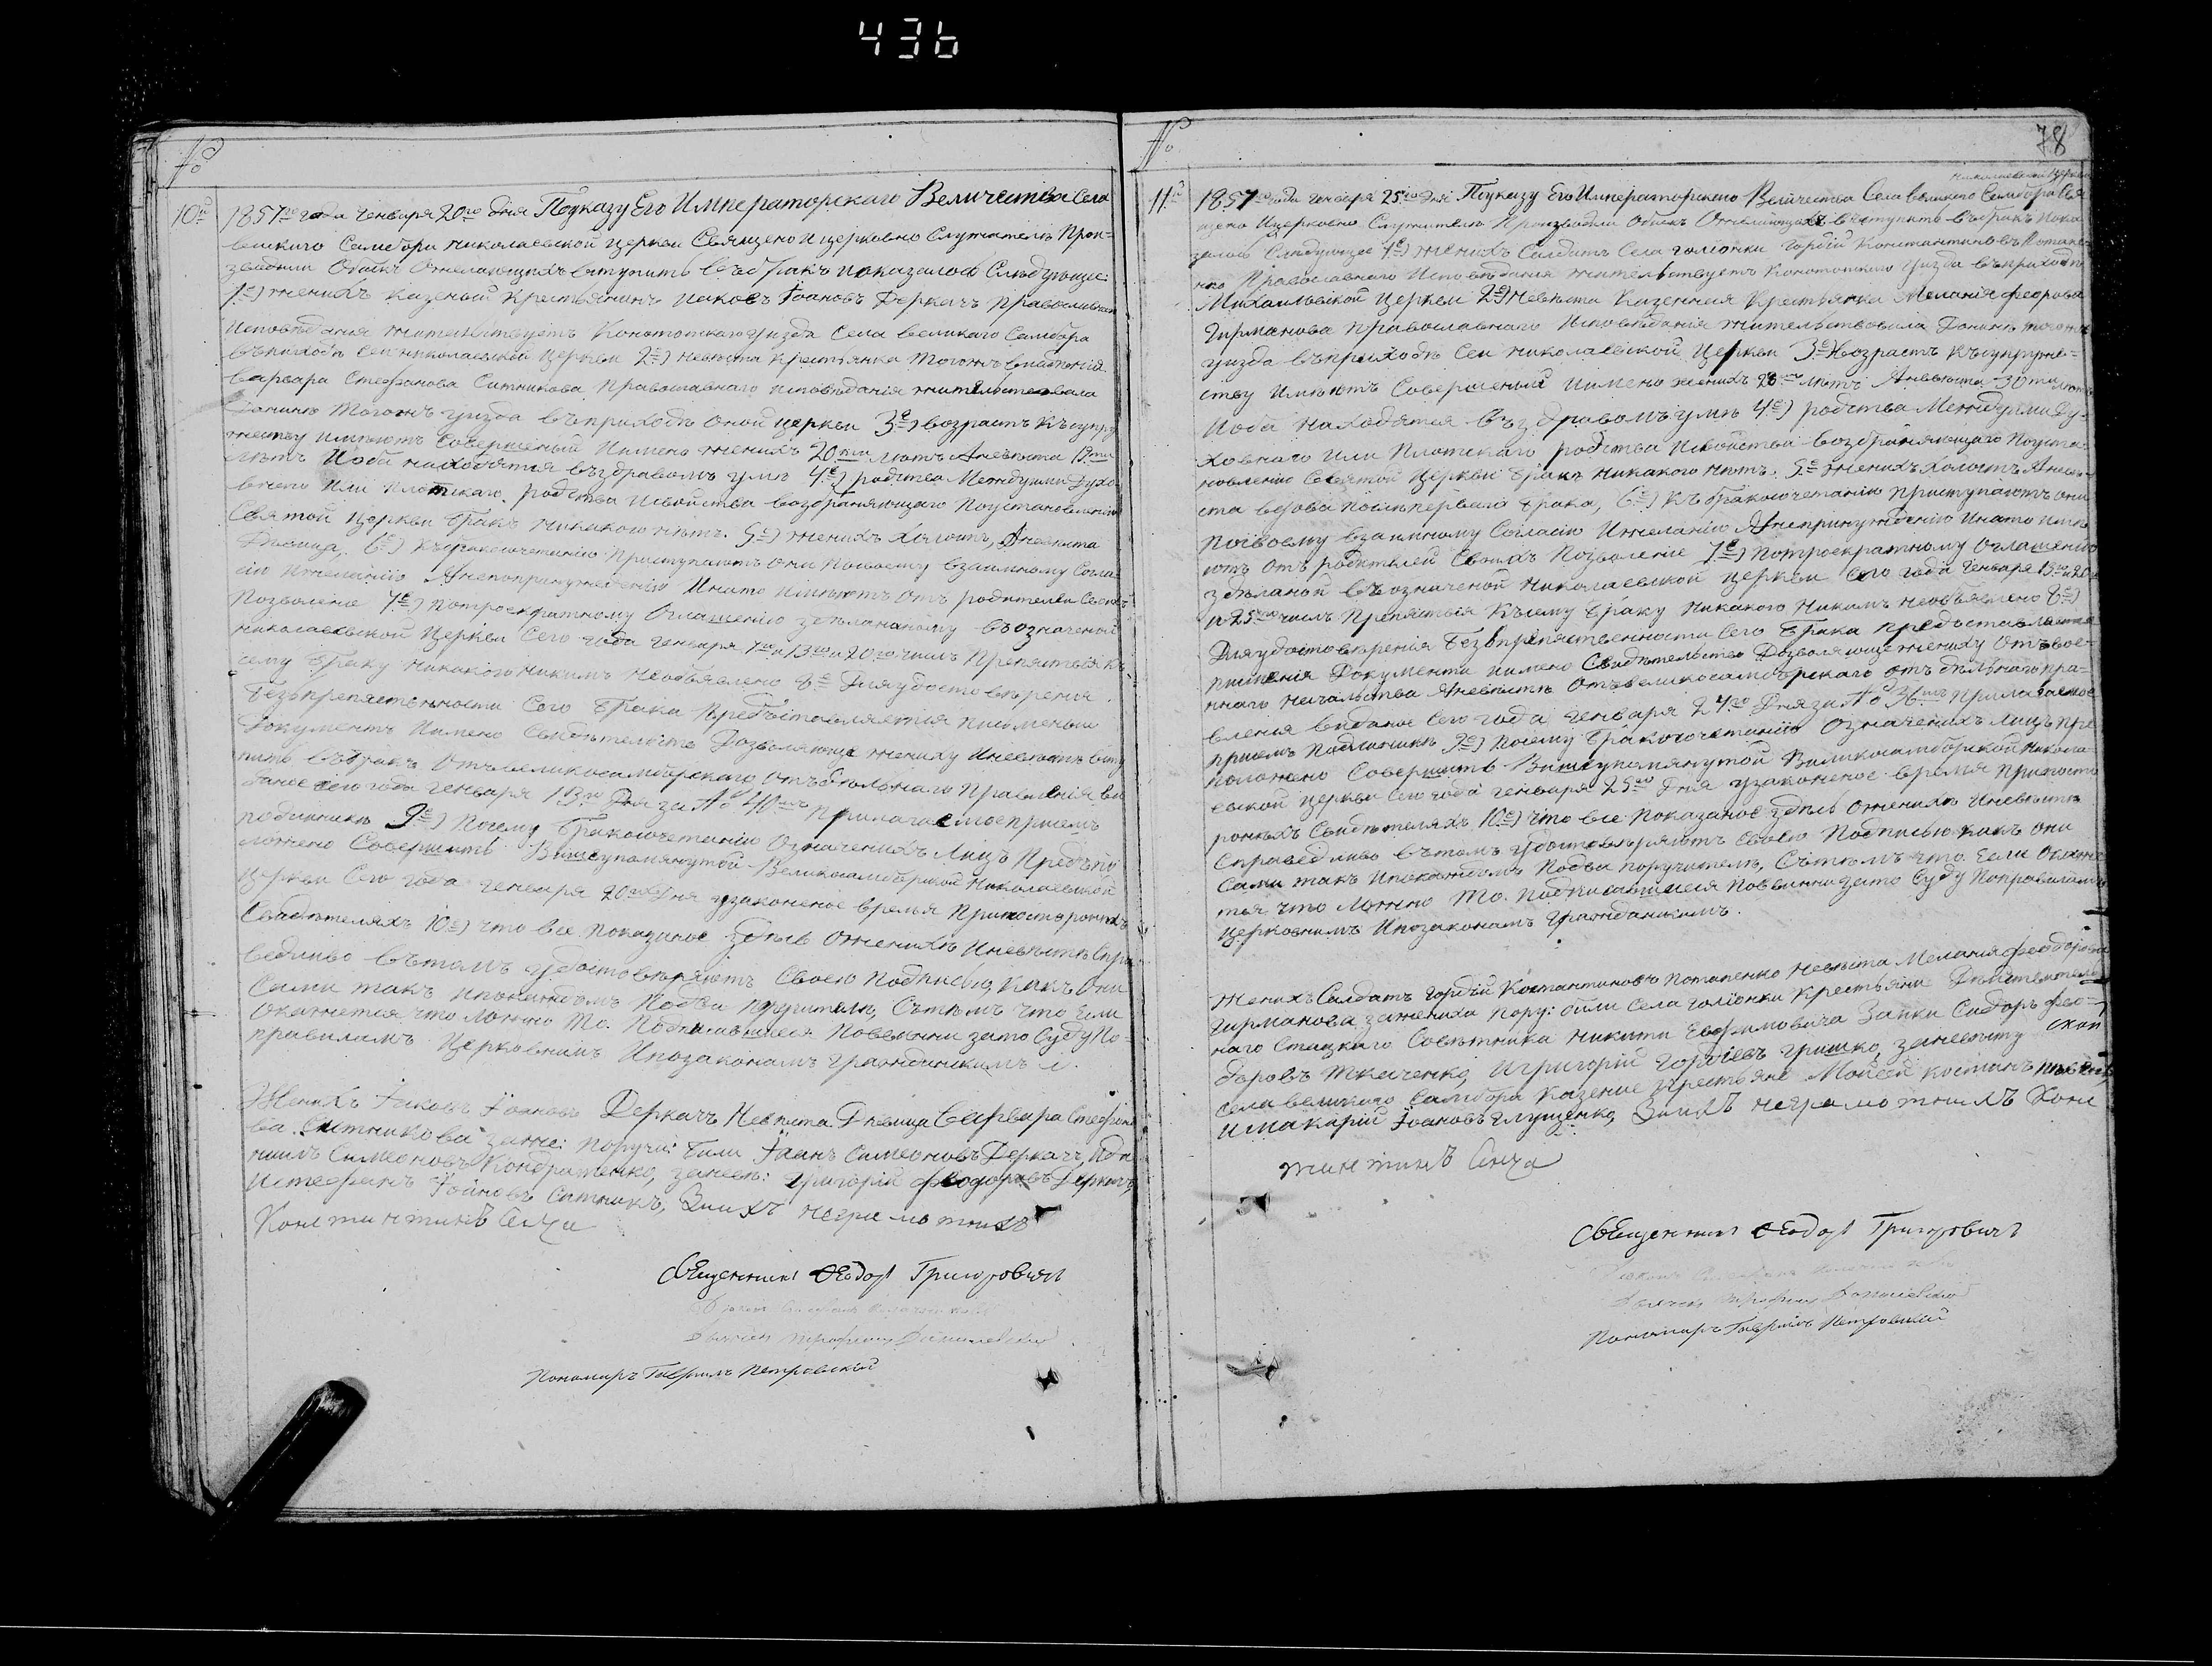 436
№
10й
1857го года Генваря 20го дня Поуказу Его Императорскаго Величества Села
великого Самбора николаевской церкви Священо ицерковно Служители Прои-
зводили Обыск Ожелающихъ вступить въбракъ ипоказалось Слѣдующее:
1е) женихъ казеный Крестьянинъ Иаковъ Іоановъ Деркачъ Православнаго
Исповѣдания жительствуетъ Конотопскаго уизда Села великаго Самбора
въприходѣ Сеи николаевской Церкви 2е) невѣста Крестьянка Тогожъ
варвара Стефанова Ситникова Православнаго исповѣданія жительствовала
донинѣ Тогожъ уизда въприходѣ оной церкви 3е) возрастъ Къ супру
жеству имѣютъ Совершеный Имено женихъ 20ти лѣтъ Аневѣста 19ти
лѣтъ Иоба находятся въздравомъ умѣ 4е) родства Междуими Духо
внаго Или плотскаго родства Исвойства возбраняющаго Поустановлению
Святой Церкви бракъ никакого нѣтъ. 5е) женихъ Холостъ, Аневѣста
Дѣвица, 6е) Къбракосочетанію приступаютъ они Посвоему взаимному Согла
сію Ижеланію Анепопринуждению Инато имѣютъ отъ родителей Своихъ
Позволение 7е) Потроекратному Оглашенію здѣлананому въозначеной
николаевской Церкви Сего года Генваря 7го и 13го и 20го числъ Препятствія къ
сему браку никакого никимъ необъявлено 8е Дляудостовѣрения
безъпрепятственности Сего брака предъставляется писменый
Документъ Имено Свидѣтельство Дозволяюще жениху Иневѣстѣ всту
пить въбракъ отъвеликосамборскаго отъдѣльонаго Правления ви
данее сего года генваря 13го Дня за № 40мъ Прилагаемоеприсемъ
подлинникѣ 9е) Почему бракосочетанию Означенихъ Лицъ Предъпо
ложено Совершить Вишеупомянутой Великосамборской Николаевской
церкви Сего года генваря 20го дня узаконеное время Припосторонихъ
Свидѣтеляхъ 10е) что все показаное здѣсь Оженихѣ Иневѣстѣ Спра
ведливо вътомъ удостовѣряютъ Своею подписью, какъ Они
Сами такъ ипокаждомъ Подва поручителя, Сътѣмъ что Если
Окажется что Ложно то. Подписавшиеся Повинни зато Суду По-
правиламъ Церковнимъ Ипозаконамъ Гражданскимъ.
Женихъ Іаковъ Іоановъ Деркачъ Невѣста Дѣвица Варвара Стефано
ва Ситникова зажен: поручи: били Іоанъ Симеоновъ Деркачъ,
Симеоновъ Кондратенко, заневѣ: Григорій феодоровъ Деркачъ,
Истефанъ Іоановъ Ситникъ, Заихъ неграмотнихъ
Константинъ Сича
Священникъ Феодоръ Григоровичъ
Пономаръ Гавриилъ Петровский
№
78
Николаевской Церкви
11й
1857го года генваря 25го дня Поуказу Его Императорскаго Величества Села великого Самбора Свя
щено Ицерковно Служители Производили Обыскъ Ожелающихъ въступить въбракъ Пока
залось Слѣдующее 1е) женихъ Салдатъ Села голіонки гордій Константиновъ Потапе
нко Православнаго Исповѣдания жительствуетъ Конотопскаго Уизда въприходѣ
Михаильвской Церкви 2е) Невѣста Казенная Крестьянка Меланія Феорова
Гирманова православнаго Исповѣданія жительствовала Донинѣ тогожъ
уизда въприходѣ Сеи николаевской Церкви 3е) Возрастъ Късупруже-
ству Имѣютъ Совершений Иимено женихъ 28 лѣтъ Аневѣста 30ти лѣтъ
Иоба Находятся Въздравомъ умѣ 4е) родства Междуими Ду-
ховнаго или Плотскаго родства Исвойства возбраняющаго Поуста-
новлению Святой Церкви бракъ никакого нѣтъ. 5е) Женихъ Холостъ Аневѣ-
ста вдова послѣпервого брака, 6е) Къбракосочетанію приступаютъ они
посвоему взаимному Согласію Ижеланію Анепринуждению Инато имѣ
ютъ отъ родителей Своихъ Позволение 7е) Потроекратному Оглашению
здѣланой въозначеной Николаевской церкви Сего года генваря 13го и 20го
и 25го числъ Препятствія Късему браку никакого Никимъ необъявлено 8е)
Дляудостовѣренія безъпрепятственности Сего брака предъставляется
писменія Документа Имено Свидѣтельство Дозволяюще жениху Отъвое-
нного начальства Аневѣстѣ Отъвеликосамборскаго отъдѣльнаго пра-
вления виданое Сего года генваря 24го Дня за № 36мъ прилагаемое
присемъ подлинникѣ 9е) Почему бракосочетанию Означенихъ Лицъ пре
положено Совершить Вишеупомянутой Великосамборской Никола-
евской церкви Сего года генваря 25го дня узаконеное время Припосто
роннихъ Свидѣтеляхъ 10е) что все показаное здѣсь Оженихѣ Иневѣстѣ
Справедливо вътомъ удостовѣряютъ своею Подписью какъ Они
Сами такъ Ипокаждомъ Подва поручителя, Сътѣмъ что Если Окаже
тся что Ложно то. Подписавшиеся Повинни зато Суду Поправиламъ
Церковнимъ Ипозаконамъ Гражданскимъ.
Женихъ Салдатъ Гордій Костантиновъ Потапенко Невѣста Меланія Феодорова
Гирманова зажениха пору: били Села голіонки Крестьяни Дѣйствитель
наго Стацкаго Совѣтника Никити Евфимовича Заики Сидоръ Фео-
доровъ Ткаченко, Игригорій Гордіевъ Гришко, заневѣсту
села великого Самбора Казение Крестьяне Мойсей Костинъ
Имакарій Іоановъ Глущенко, Заихъ неграмотнихъ Конс
тантинъ Сича
Священникъ Феодоръ Григоровичъ
Пономаръ Гавриилъ Петровский